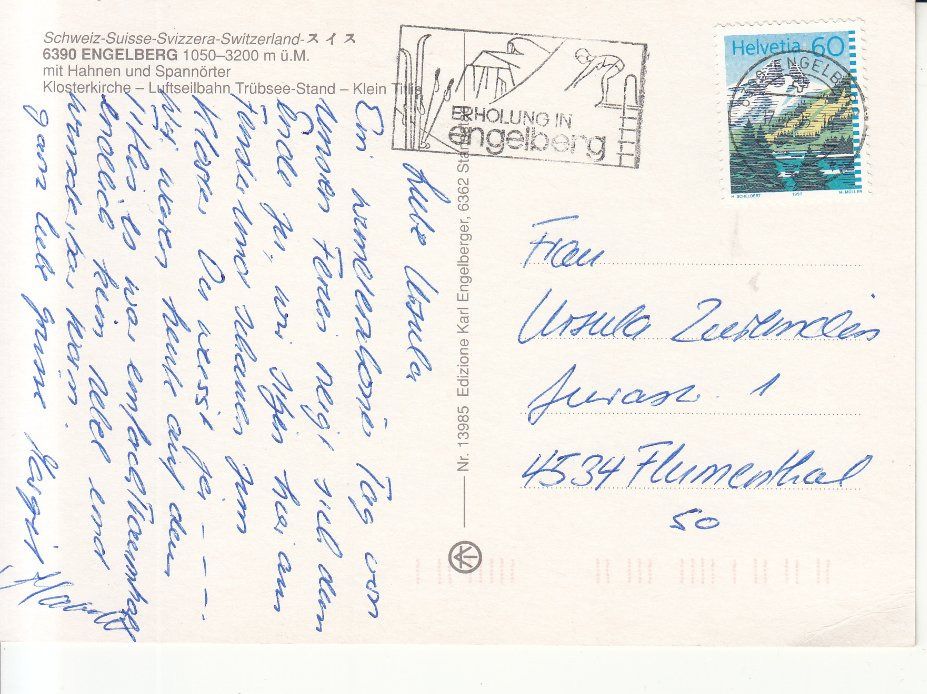 Schweiz-Suisse-Svizzera-Switzerland-スイス
6390 ENGELBERG 1050–3200 m ü.M.
mit Hahnen und Spannörter
Klosterkirche – Luftseilbahn Trübsee-Stand – Klein Titlis
ERHOLUNG IN
engelberg
Helvetia 60
ENGELBERG
Liebe Ursula
Ein wunderbarer Tag von
unseren Ferien neigt sich dem
Ende zu, wir sitzen hier am
Fenster und schauen zum
Kloster, Du weisst ja - - - -
Wir waren heute auf dem
Titlis es war einfach traumhaft
endlich kein Nebel und
wunderbar warm.
ganz liebe Grüsse
Nr. 13985 Edizione Karl Engelberger, 6362
Frau
Ursula
Jurastr. 1
4534 Flumenthal
50